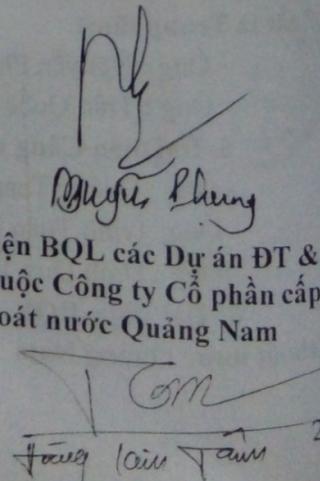 Nguyễn Phụng
ện BQL các Dự án ĐT &
uộc Công ty Cổ phần cấp
oát nước Quảng Nam
Tâm